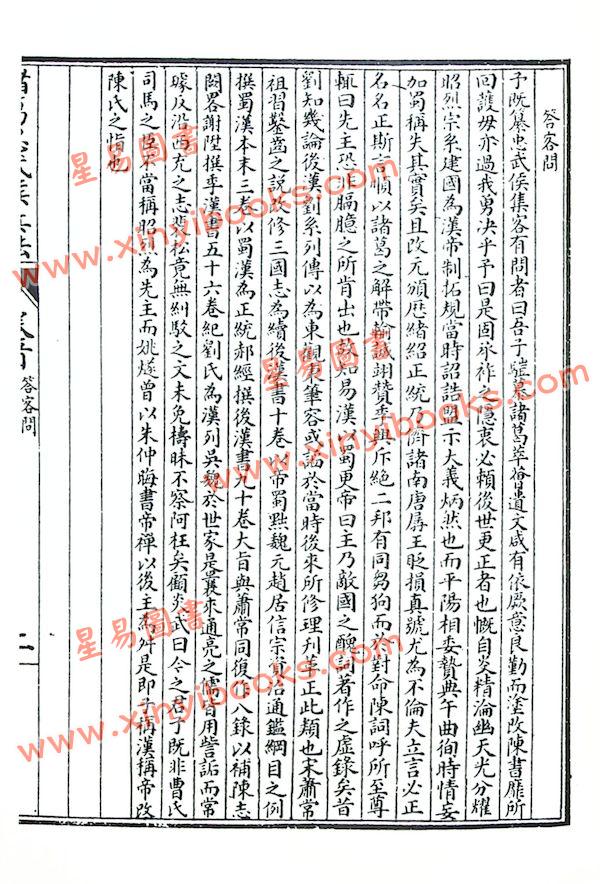 答客問
予既纂忠武侯集客有問者曰吾子
諸葛
遺文咸有依
意良勤而塗改陳書靡所
回護毋亦過我勇決乎予曰是固承祚之隱衷必賴後世更正者也慨自炎精淪幽天光分耀
昭烈宗系建國為漢帝制拓規當時詔誥盟示大義炳然也而平陽相委贄典午曲徇時情妄
加蜀稱失其實矣且改元頒歷緒紹正統乃儕諸南唐孱王貶損真號尤為不倫夫立言必正
名名正斯言順以諸葛之解帶輸誠翊贊乘輿斥絕二邦有同芻狗而於對命陳詞呼所至尊
輒曰先王恐非膈臆之所肯出也
知易漢以蜀更帝曰主乃敵國之醜詞著作之虛錄矣昔
劉知幾論後漢劉系列傳以為東觀秉筆容或諂於當時後來所修理刋革正此類也宋蕭常
祖習鑿齒之說改修三國志為續後漢書十卷以帝蜀黜魏元趙居信宗資治通鑑綱目之例
撰蜀漢本末三卷以蜀漢為正統郝經撰後漢書九十卷大旨與蕭常同復作八錄以補陳志
闕畧謝陞撰季漢書五十六卷紀劉氏為漢列吳魏於世家是曩來通亮之儒皆用訾詬而常
璩反沿西充之志裴松竟無糾駁之文未免檮昧不察阿枉矣顧炎武曰今之君子既非曹氏
司馬之臣不當稱昭烈為先主而姚燧曾以朱仲晦書帝禪以後主為舛是即予稱漢稱帝改
陳氏之恉也
答客問
二
星易圖書
www.xinyibooks.com
星易圖書
www.xinyibooks.com
星易圖書
www.xinyibooks.com
星易圖書
www.xinyibooks.com